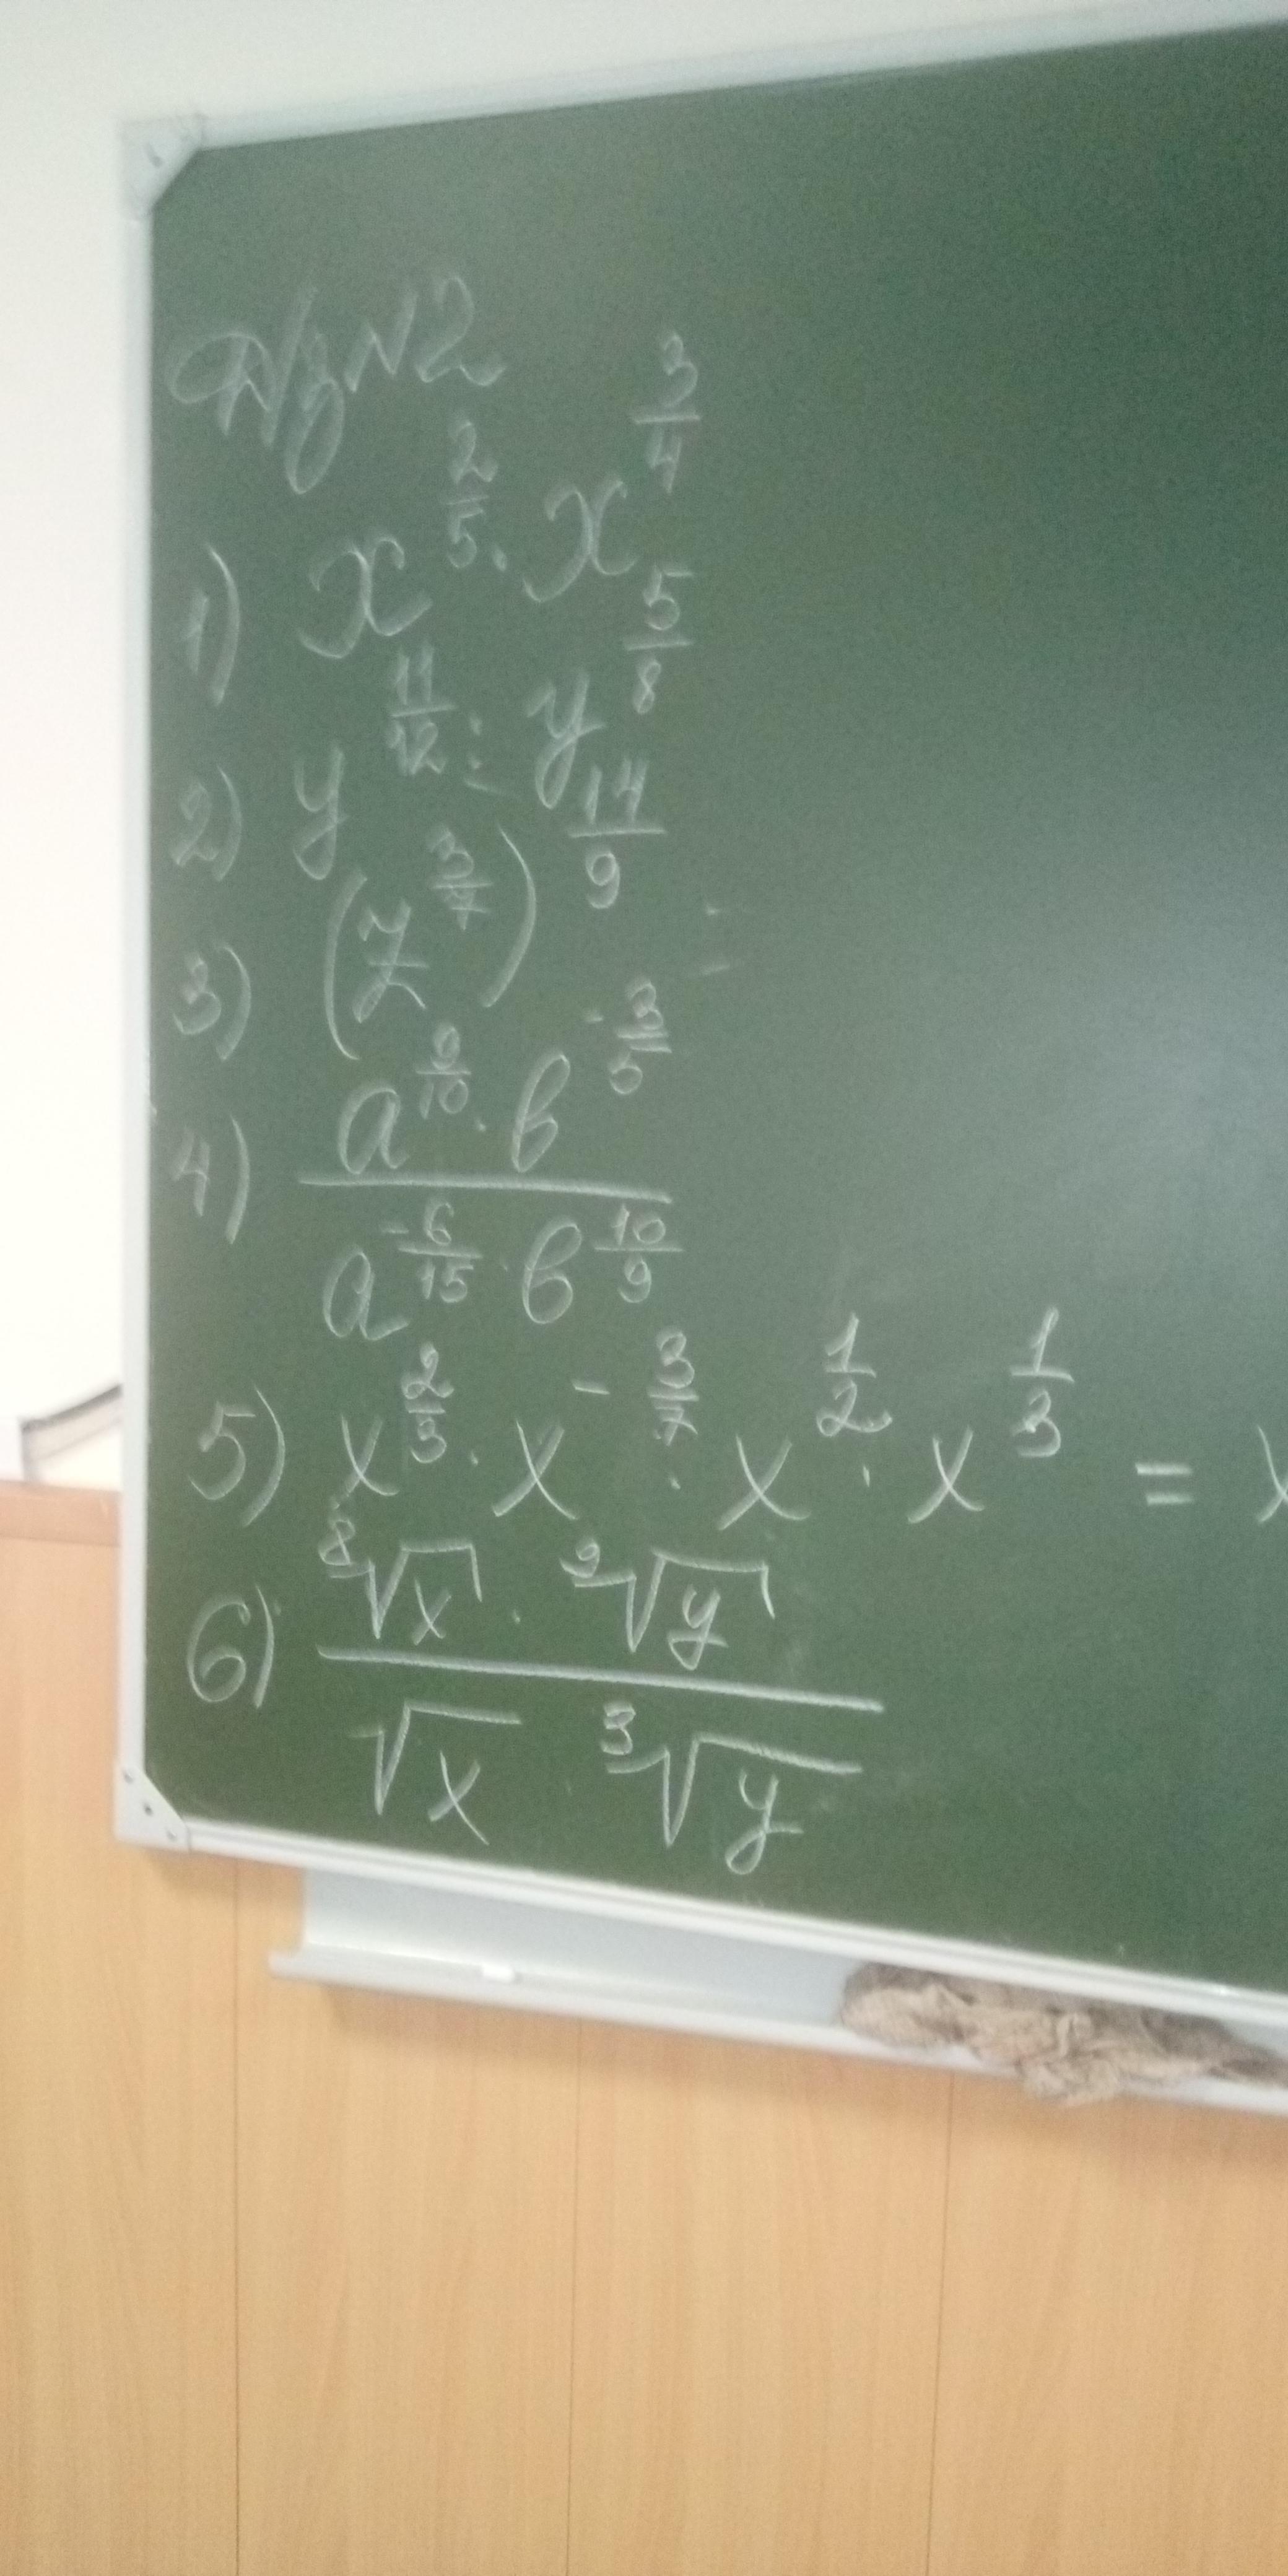 Д/з №2
1) x^{2/5} · x^{3/4}
2) y^{11/12} : y^{5/8}
3) (z^{3/7})^{14/9} =
4) \frac{a^{9/10} · b^{-3/5}}{a^{-6/15} · b^{10/9}}
5) x^{2/3} · x^{-3/7} · x^{1/2} · x^{1/3} = x
6) \frac{\sqrt[8]{x} · \sqrt[9]{y}}{\sqrt{x} \sqrt[3]{y}}